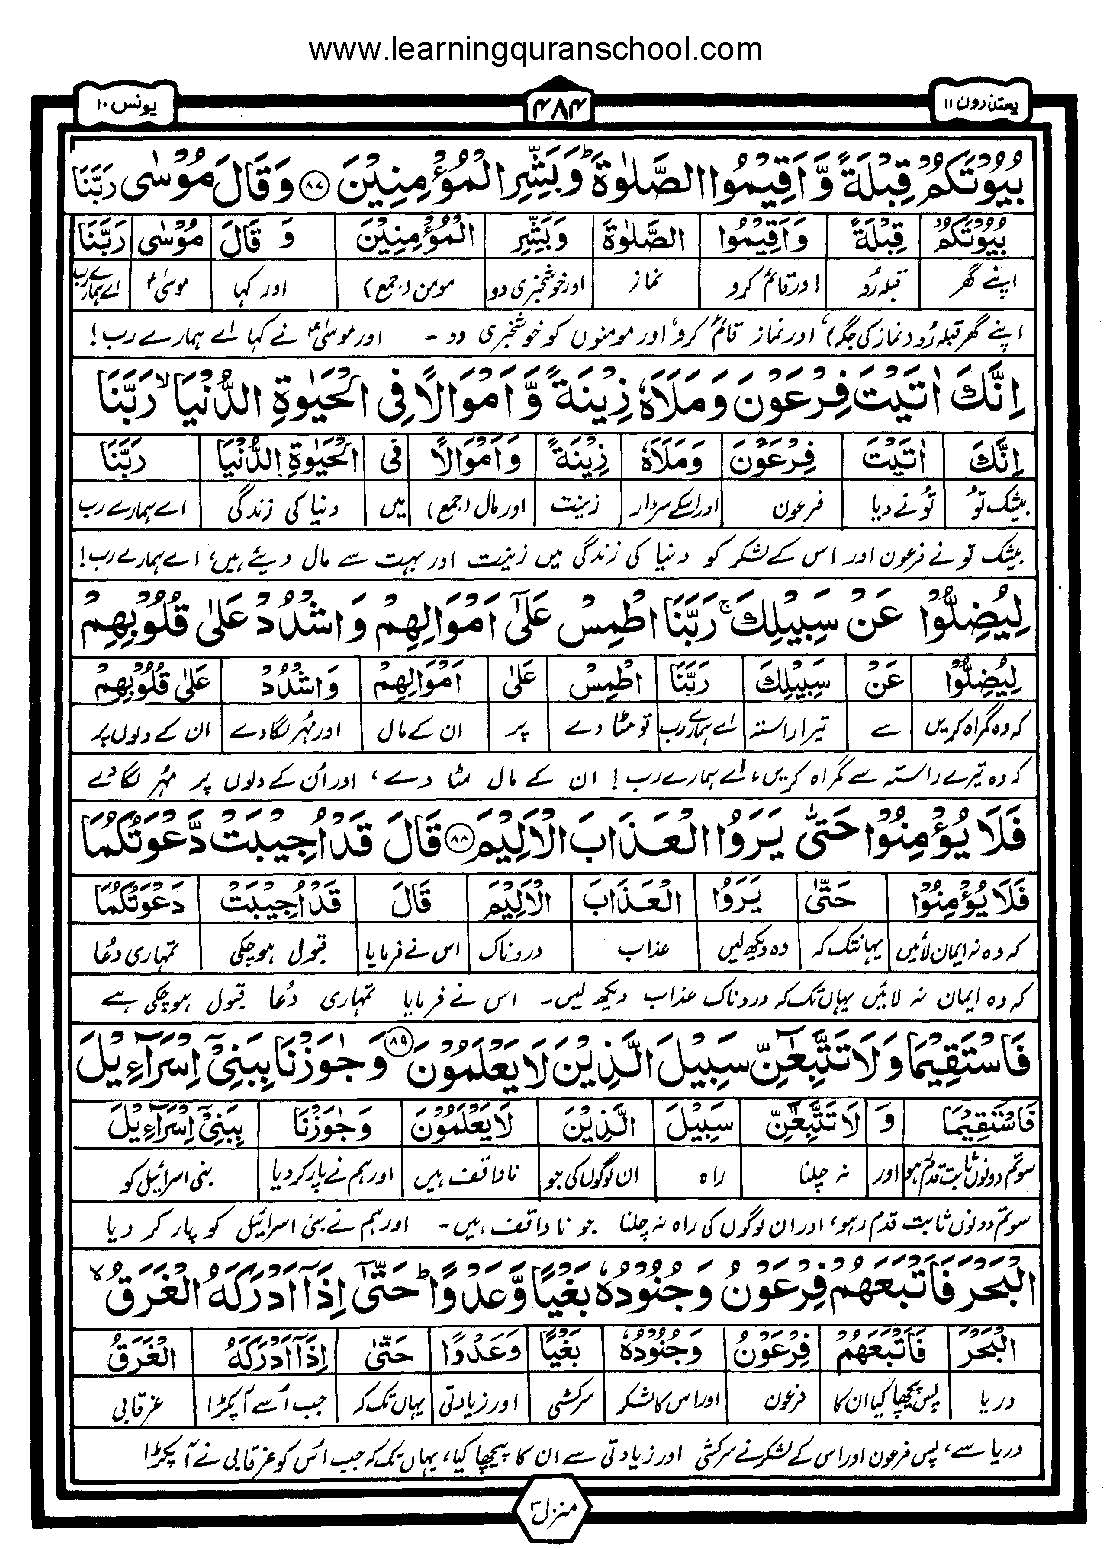 www.learningquranschool.com
یعتذرون ۱۱ ۴۸۴ یونس ۱۰
بُيُوْتَكُمْ قِبْلَةً وَّاَقِيْمُوا الصَّلٰوةَ ؕ وَبَشِّرِ الْمُؤْمِنِيْنَ ﴿۸۷﴾ وَقَالَ مُوْسٰى رَبَّنَا
بُيُوْتَكُمْ قِبْلَةً وَاَقِيْمُوا الصَّلٰوةَ وَبَشِّرِ الْمُؤْمِنِيْنَ وَ قَالَ مُوْسٰى رَبَّنَا
اپنے گھر قبلہ رُو اور قائم کرو نماز اور خوشخبری دو مومن (جمع) اور کہا موسیٰؑ اے ہمارے رب
اپنے گھر قبلہ رُو (نماز کی جگہ) اور نماز قائم کرو، اور مومنوں کو خوشخبری دو - اور موسیٰؑ نے کہا اے ہمارے رب!
اِنَّكَ اٰتَيْتَ فِرْعَوْنَ وَمَلَاَهٗ زِيْنَةً وَّاَمْوَالًا فِى الْحَيٰوةِ الدُّنْيَا ۙ رَبَّنَا
اِنَّكَ اٰتَيْتَ فِرْعَوْنَ وَمَلَاَهٗ زِيْنَةً وَاَمْوَالًا فِى الْحَيٰوةِ الدُّنْيَا رَبَّنَا
بیشک تو تُو نے دیا فرعون اور اسکے سردار زینت اور مال (جمع) میں دنیا کی زندگی اے ہمارے رب
بیشک تو نے فرعون اور اس کے لشکر کو دنیا کی زندگی میں زینت اور بہت سے مال دیئے ہیں، اے ہمارے رب!
لِيُضِلُّوْا عَنْ سَبِيْلِكَ ۚ رَبَّنَا اطْمِسْ عَلٰٓى اَمْوَالِهِمْ وَاشْدُدْ عَلٰى قُلُوْبِهِمْ
لِيُضِلُّوْا عَنْ سَبِيْلِكَ رَبَّنَا اطْمِسْ عَلٰٓى اَمْوَالِهِمْ وَاشْدُدْ عَلٰى قُلُوْبِهِمْ
کہ وہ گمراہ کریں سے تیرا راستہ اے ہمارے رب تو مٹا دے پر ان کے مال اور مُہر لگا دے ان کے دلوں پر
کہ وہ تیرے راستہ سے گمراہ کریں، اے ہمارے رب! ان کے مال مٹا دے، اور اُن کے دلوں پر مہر لگا دے
فَلَا يُؤْمِنُوْا حَتّٰى يَرَوُا الْعَذَابَ الْاَلِيْمَ ﴿۸۸﴾ قَالَ قَدْ اُجِيْبَتْ دَّعْوَتُكُمَا
فَلَا يُؤْمِنُوْا حَتّٰى يَرَوُا الْعَذَابَ الْاَلِيْمَ قَالَ قَدْ اُجِيْبَتْ دَعْوَتُكُمَا
کہ وہ نہ ایمان لائیں یہانتک کہ وہ دیکھ لیں عذاب دردناک اس نے فرمایا قبول ہو چکی تمہاری دُعا
کہ وہ ایمان نہ لائیں یہاں تک کہ دردناک عذاب دیکھ لیں - اس نے فرمایا تمہاری دُعا قبول ہو چکی ہے
فَاسْتَقِيْمَا وَلَا تَتَّبِعٰٓنِّ سَبِيْلَ الَّذِيْنَ لَا يَعْلَمُوْنَ ﴿۸۹﴾ وَجٰوَزْنَا بِبَنِىْٓ اِسْرَآءِيْلَ
فَاسْتَقِيْمَا وَ لَا تَتَّبِعٰٓنِّ سَبِيْلَ الَّذِيْنَ لَا يَعْلَمُوْنَ وَجٰوَزْنَا بِبَنِىْٓ اِسْرَآءِيْلَ
سو تم دونوں ثابت قدم رہو اور نہ چلنا راہ ان لوگوں کی جو ناواقف ہیں اور ہم نے پار کر دیا بنی اسرائیل کو
سو تم دونوں ثابت قدم رہو، اور ان لوگوں کی راہ نہ چلنا جو ناواقف ہیں - اور ہم نے بنی اسرائیل کو پار کر دیا
الْبَحْرَ فَاَتْبَعَهُمْ فِرْعَوْنُ وَجُنُوْدُهٗ بَغْيًا وَّعَدْوًا ؕ حَتّٰٓى اِذَآ اَدْرَكَهُ الْغَرَقُ ۙ
الْبَحْرَ فَاَتْبَعَهُمْ فِرْعَوْنُ وَجُنُوْدُهٗ بَغْيًا وَعَدْوًا حَتّٰٓى اِذَآ اَدْرَكَهُ الْغَرَقُ
دریا پس پیچھا کیا ان کا فرعون اور اس کا لشکر سرکشی اور زیادتی یہاں تک کہ جب اُسے آ پکڑا غرقابی
دریا سے، پس فرعون اور اس کے لشکر نے سرکشی اور زیادتی سے ان کا پیچھا کیا، یہاں تک کہ جب اس کو غرقابی نے آ پکڑا
منزل ۳